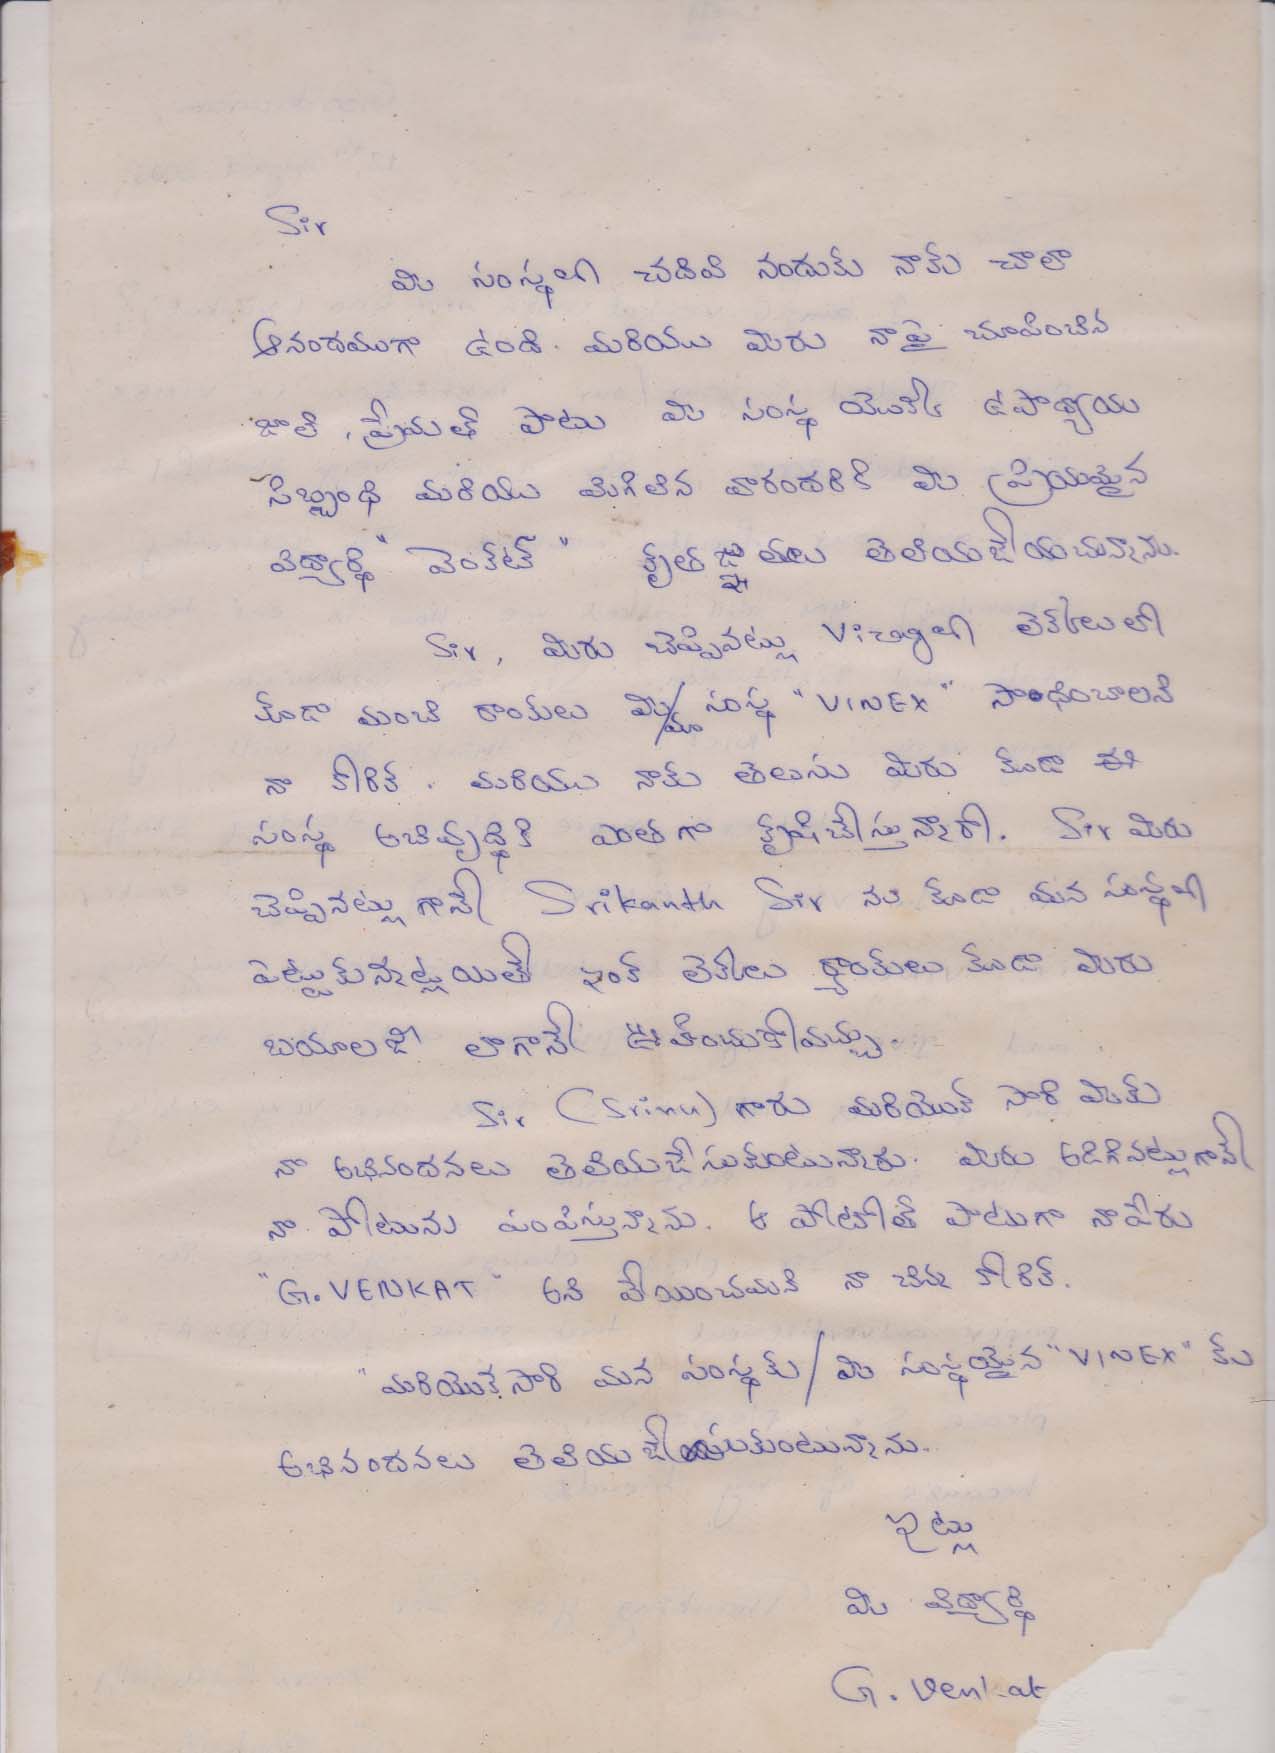 Sir
మీ సంస్థలో చదివి నందుకు నాకు చాలా
ఆనందముగా ఉంది. మరియు మీరు నాపై చూపించిన
జాలి, ప్రేమతో పాటు మీ సంస్థ యొక్క ఉపాధ్యాయ
సిబ్బంధి మరియు మిగిలిన వారందరికి మీ ప్రియమైన
విద్యార్థి "వెంకట్" కృతజ్ఞతలు తెలియజేయచున్నాను.
Sir, మీరు చెప్పినట్లు Vizagలో లెక్కలులో
కూడా మంచి రాంకులు మీ/మా సంస్థ "VINEX" సాధించాలని
నా కోరిక. మరియు నాకు తెలుసు మీరు కూడా ఈ
సంస్థ అభివృద్ధికి ఎంతగా కృషిచేస్తున్నారో. Sir మీరు
చెప్పినట్లుగానే Srikanth Sir ను కూడా మన సంస్థలో
పెట్టుకున్నట్లయితే ఇంక లెక్కలు ర్యాంకులు కూడా మీరు
బయాలజీ లాగానే ఊహించుకోవచ్చు.
Sir (Srinu) గారు మరియొక సారి మీకు
నా అభినందనలు తెలియజేసుకుంటున్నారు. మీరు అడిగినట్లుగానే
నా ఫోటును పంపిస్తున్నాను. ఆ ఫోటోతో పాటుగా నాపేరు
"G. VENKAT" అని వేయించమని నా చిన్న కోరిక.
"మరియొకసారి మన సంస్థకు/మీ సంస్థయైన "VINEX" కు
అభినందనలు తెలియజేసుకుంటున్నాను.
ఇట్లు
మీ విద్యార్థి
G. Venkat